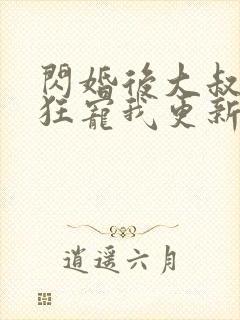 閃婚後大叔
狂寵我更新
逍遥六月